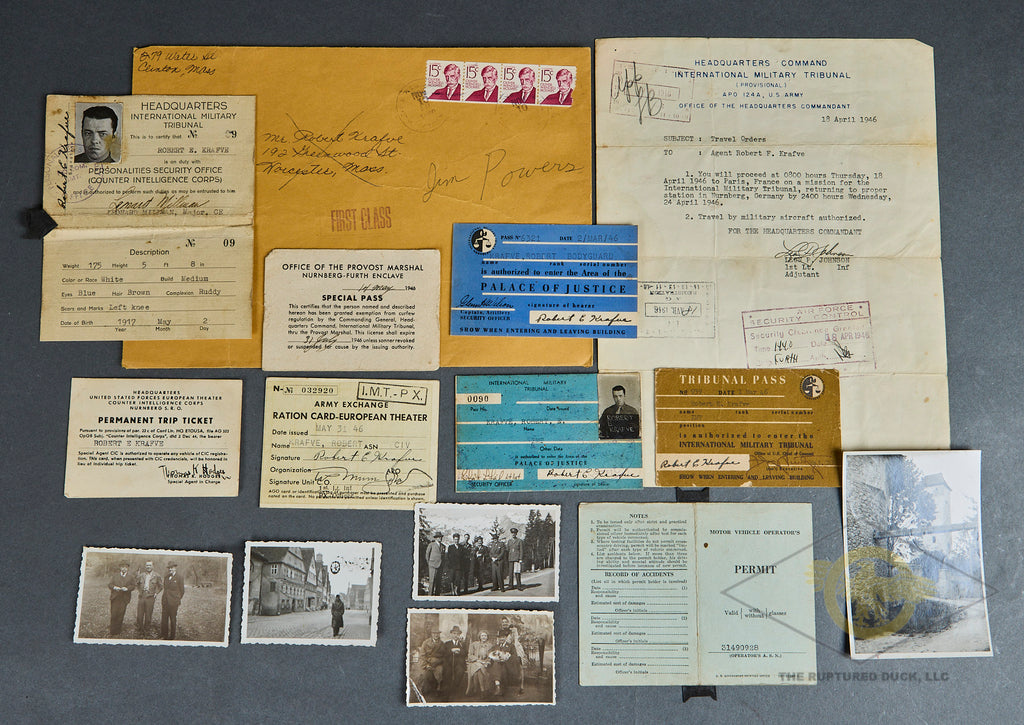 879 Water St
Clinton, Mass
15¢ 15¢ 15¢ 15¢
Mr. Robert Krafve
192 Greenwood St.
Worcester, Mass.
Jim Powers
FIRST CLASS
HEADQUARTERS
INTERNATIONAL MILITARY
TRIBUNAL
This is to certify that No 09
ROBERT E. KRAFVE
is on duty with
PERSONALITIES SECURITY OFFICE
(COUNTER INTELLIGENCE CORPS)
and is authorized to perform such duties as may be entrusted to him
Major, CE
Robert E Krafve
No 09
Description
Weight 175 Height 5 ft 8 in
Color or Race White Build Medium
Eyes Blue Hair Brown Complexion Ruddy
Scars and Marks Left knee
Date of Birth 1917 May 2
Year Month Day
HEADQUARTERS COMMAND
INTERNATIONAL MILITARY TRIBUNAL
(PROVISIONAL)
APO 124A, U.S. ARMY
OFFICE OF THE HEADQUARTERS COMMANDANT
18 April 1946
SUBJECT : Travel Orders
TO : Agent Robert F. Krafve
1. You will proceed at 0800 hours Thursday, 18
April 1946 to Paris, France on a mission for the
International Military Tribunal, returning to proper
station in Nurnberg, Germany by 2400 hours Wednesday,
24 April 1946.
2. Travel by military aircraft authorized.
FOR THE HEADQUARTERS COMMANDANT
1st Lt. Inf
Adjutant
AIR FORCE
SECURITY CONTROL
Security Clearance Given
Time 1440 18 APR 1946
FURTH
OFFICE OF THE PROVOST MARSHAL
NURNBERG-FURTH ENCLAVE
14 May 1946
SPECIAL PASS
This certifies that the person named and described
hereon has been granted exemption from curfew
regulation by the Commanding General, Head-
quarters Command, International Military Tribunal,
thru the Provost Marshal. This license shall expire
31 July 1946 unless sooner revoked
or suspended for cause by the issuing authority.
PASS No 6321 DATE 2/MAR/46
KRAFVE, ROBERT BODYGUARD
name rank serial number
is authorized to enter the Area of the
PALACE OF JUSTICE
signature of bearer
Captain, Artillery
SECURITY OFFICER Robert E Krafve
SHOW WHEN ENTERING AND LEAVING BUILDING
HEADQUARTERS
UNITED STATES FORCES EUROPEAN THEATER
COUNTER INTELLIGENCE CORPS
NURNBERG S.R.O.
PERMANENT TRIP TICKET
Pursuant to provisions par. 22 c of Conf Ltr. HQ ETOUSA, file AG 322
OpGB Subj. "Counter Intelligence Corps", dtd 2 Dec 44, the bearer
ROBERT E KRAFVE
Special Agent CIC is authorized to operate any vehicle of CIC registra-
tion. This card, when presented with CIC credentials, will be honored in
lieu of individual trip ticket.
Special Agent in Charge
N-No 032920 I.M.T-PX.
ARMY EXCHANGE
RATION CARD-EUROPEAN THEATER
DATE MAY 31 46
Name KRAFVE, ROBERT ASN CIV
Signature Robert E Krafve
Organization APO
Signature Unit C.O.
INTERNATIONAL MILITARY
TRIBUNAL
0090
Pass No. Date Issued
ROBERT
KRAFVE
is authorized to enter the Area of the
PALACE OF JUSTICE
Robert E Krafve
SECURITY OFFICER
TRIBUNAL PASS
Robert E. Krafve
name rank serial number
position
is authorized to enter the
INTERNATIONAL MILITARY TRIBUNAL
Robert E Krafve
SHOW WHEN ENTERING AND LEAVING BUILDING
NOTES
RECORD OF ACCIDENTS
(List all in which permit holder is involved)
Date (1)
Responsibility
and cause
Estimated cost of damages
Officer's initials
Date (1)
Responsibility
and cause
Estimated cost of damages
Officer's initials
Date (1)
Responsibility
and cause
Estimated cost of damages
Officer's initials
MOTOR VEHICLE OPERATOR'S
PERMIT
Valid with without glasses
31490928
(OPERATOR'S A. S. N.)
THE RUPTURED DUCK, LLC